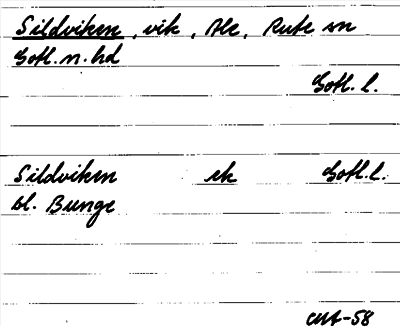 Sildviken, vik, Ale, Rute sn
Gotl. n. hd
Gotl. l.
Sildviken ek Gotl. l.
bl. Bunge